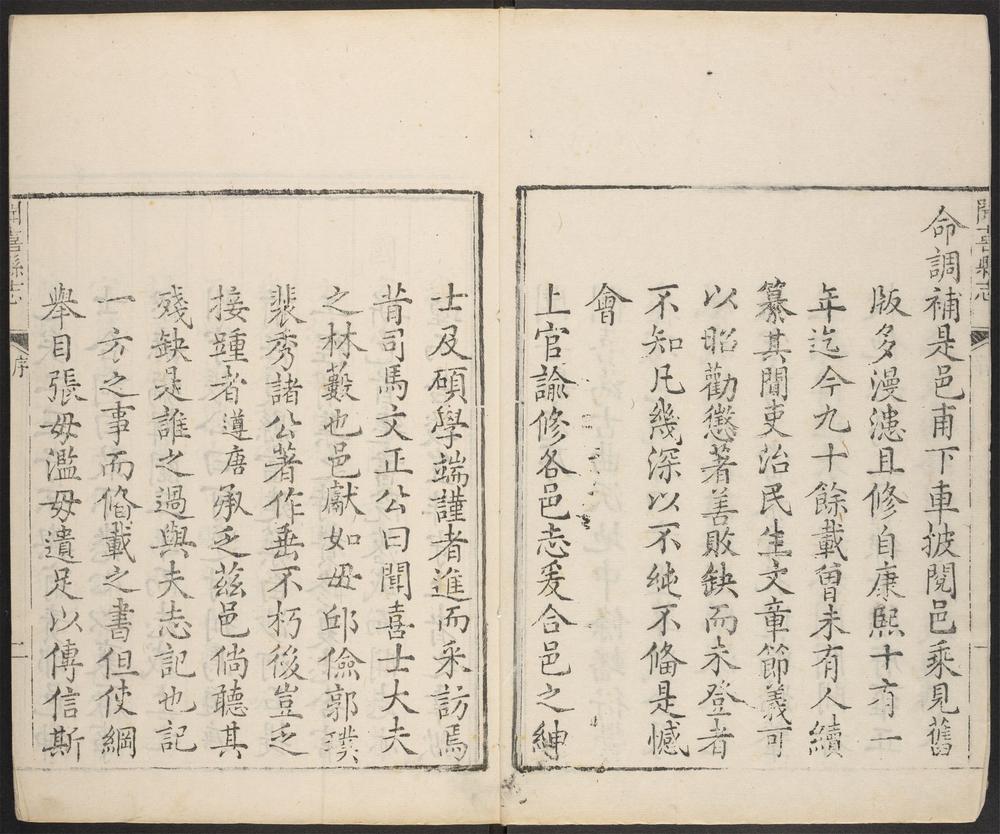 聞喜縣志
命調補是邑甫下車披閱邑乘見舊
版多漫漶且修自康熙十有一
年迄今九十餘載曾未有人續
纂其聞吏治民生文章節義可
以昭勸懲著善敗缺而未登者
不知凡幾深以不純不備是憾
會
上官諭修各邑志爰合邑之紳
士及碩學端謹者進而采訪焉
昔司馬文正公曰聞喜士大夫
之林藪也邑獻如毋邱儉郭璞
裴秀諸公著作垂不朽後豈乏
接踵者遵唐承乏茲邑倘聽其
殘缺是誰之過與夫志記也記
一方之事而俻載之書但使綱
舉目張毋濫毋遺足以傳信斯
聞喜縣志
序
二